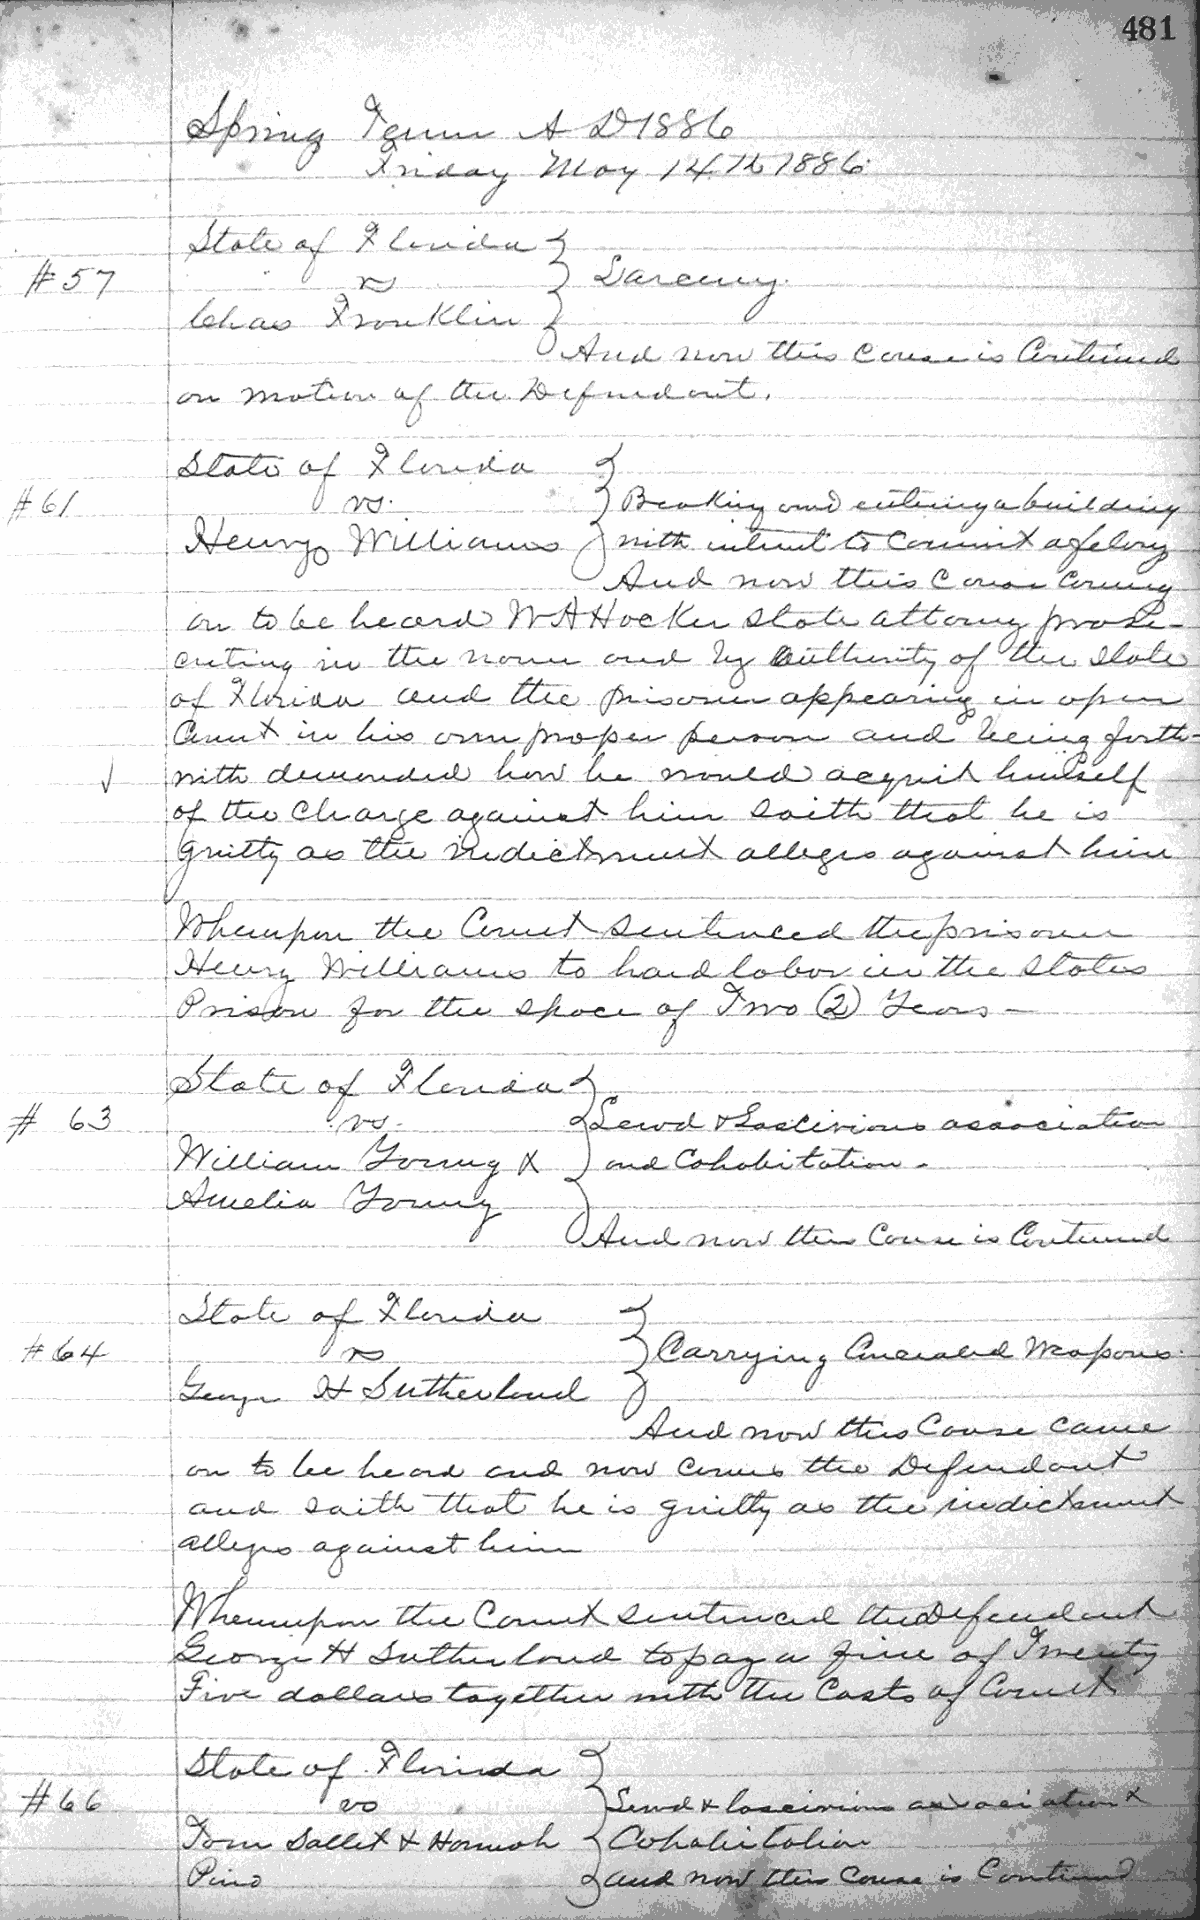 481
Spring Term A D 1886
Friday May 14th 1886
State of Florida
#57 vs Larceny.
Chas Franklin
And now this cause is Continued
on motion of the Defendant.
State of Florida
#61 vs. Breaking and entering a building
Henry Williams with intent to Commit a felony
And now this Cause coming
on to be heard W A Hocker State attorny prose-
cuting in the name and by authority of the State
of Florida and the prisoner appearing in open
Court in his own proper person and being forth-
with demanded how he would acquit himself
of the Charge against him saith that he is
guilty as the indictment alleges against him
Whereupon the Court sentenced the prisoner
Henry Williams to hard labor in the States
Prison for the space of Two (2) Years —
State of Florida
# 63 vs. Lewd & Lascivious association
William Young & and Cohabitation.
Amelia Young
And now this Cause is Continued
State of Florida
#64 vs Carrying Concealed Weapons.
George H Sutherland
And now this Cause came
on to be heard and now comes the Defendant
and saith that he is guilty as the indictment
alleges against him
Whereupon the Court sentenced the Defendant
George H Sutherland to pay a fine of Twenty
Five dollars together with the Costs of Court
State of Florida
#66 vs Lewd & lascivious association &
Tom Sallet & Hannah Cohabitation
Pino and now this Cause is Continued